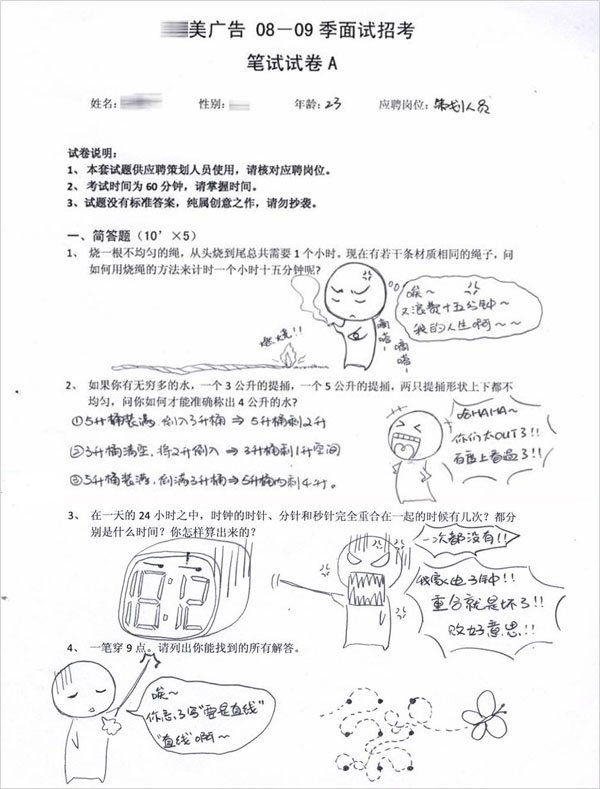 美广告 08－09 季面试招考
笔试试卷 A
姓名：
性别：
年龄：23
应聘岗位：策划人员
试卷说明：
1、 本套试题供应聘策划人员使用，请核对应聘岗位。
2、 考试时间为 60 分钟，请掌握时间。
3、试题没有标准答案，纯属创意之作，请勿抄袭。
一、简答题（10’×5）
1、 烧一根不均匀的绳，从头烧到尾总共需要 1 个小时。现在有若干条材质相同的绳子，问
如何用烧绳的方法来计时一个小时十五分钟呢？
唉～
又浪费十五分钟～
我的人生啊～～
嘀嗒
嘀嗒
燃烧!!
2、 如果你有无穷多的水，一个 3 公升的提捅，一个 5 公升的提捅，两只提捅形状上下都不
均匀，问你如何才能准确称出 4 公升的水？
①5升桶装满，倒入3升桶⇒5升桶剩2升
②3升桶清空，将2升倒入⇒3升桶剩1升空间
③5升桶装满，倒满3升桶⇒5升桶内剩4升。
哈HAHA～
你们太OUT了!!
百度上有题了!!
3、 在一天的 24 小时之中，时钟的时针、分针和秒针完全重合在一起的时候有几次？都分
别是什么时间？你怎样算出来的？
一次都没有!!
我家电子钟!!
重合就是坏了!!
败好意思!!
18:12
4、 一笔穿 9 点。请列出你能找到的所有解答。
唉～
你忘了写“要是直线”
“直线”啊～